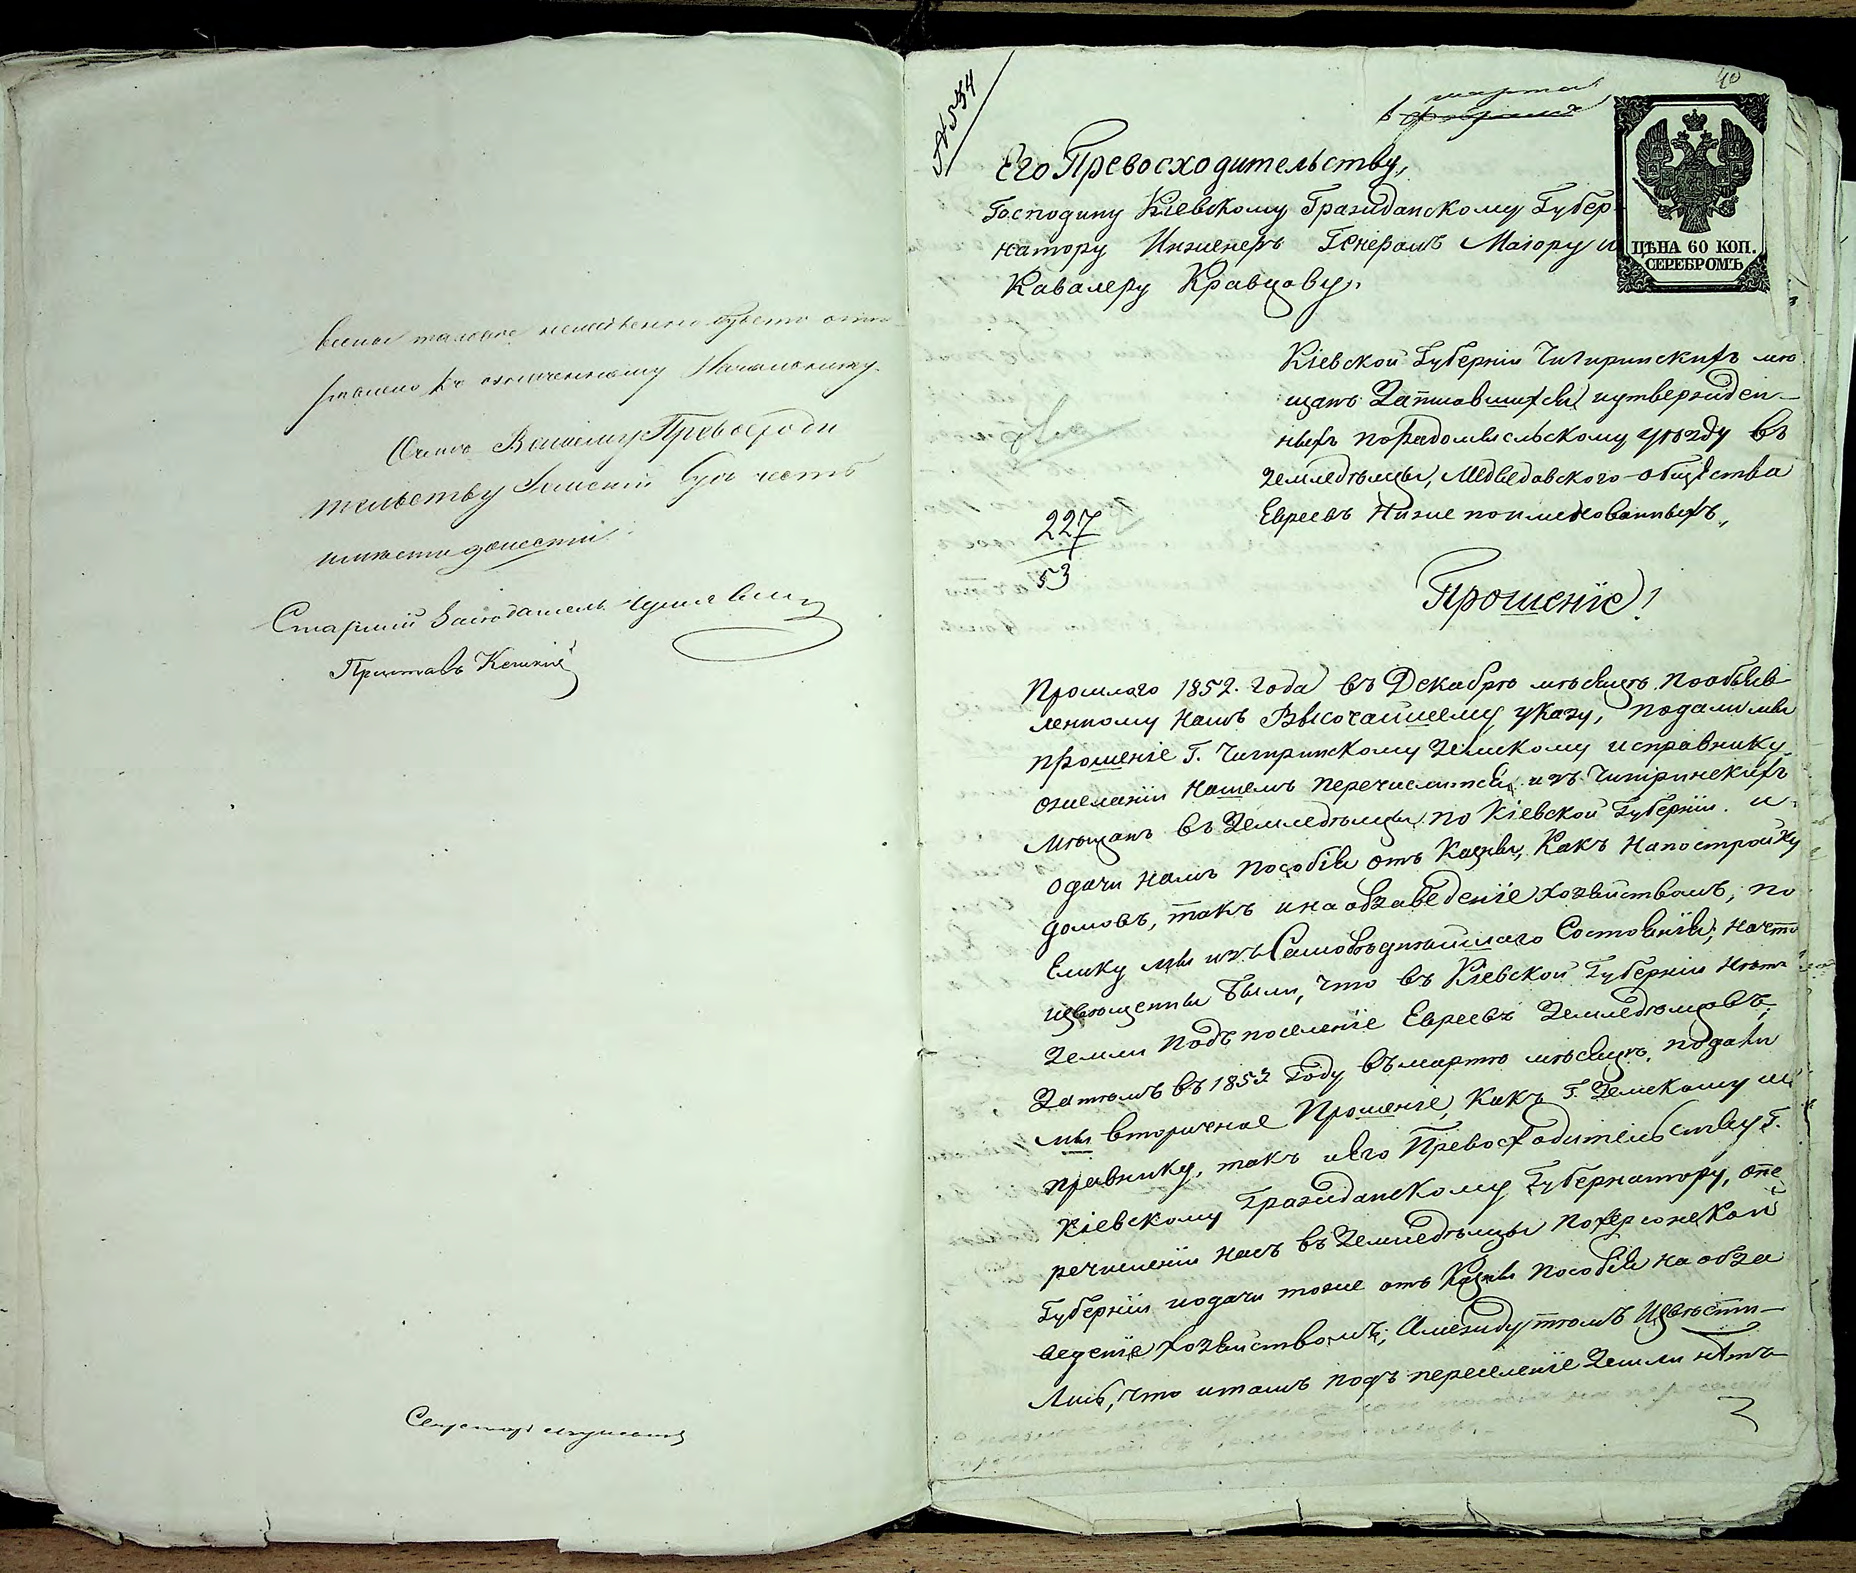 Вашему Превосходи
тельству Земский Судъ честь
имѣетъ донести.
Старшій Засѣдатель
Приставъ
Секретарь
№ 554
40
марта
1 февраля
Его Превосходительству,
Господину Кіевскому Гражданскому Губер-
натору Инженеръ Генералъ Маіору и
Кавалеру Кравцову,
ЦѢНА 60 КОП.
СЕРЕБРОМЪ
Кіевской Губерніи Чигиринскихъ мѣ
щанъ Записавшихся и утвержден-
ныхъ по Радомысльскому уѣзду въ
земледѣльцы, Медведовского общества
Евреевъ Ниже поименованныхъ,
227
53
Прошеніе!
Прошлаго 1852. года въ Декабрѣ мѣсяцѣ, по объяв
ленному намъ Высочайшему указу, подали мы
прошеніе Г. Чигринскому Земскому исправнику
ожеланіи нашемъ перечислится изъ Чигринскихъ
Мѣщанъ въ Земледѣльцы по Кіевской Губерніи. и
одачи намъ пособія отъ Казны, Какъ на постройку
домовъ, такъ и на обзаведеніе хозяйствомъ, по
Елику мы изъ Самобѣднѣйшаго Состоянія; на что
извѣщенны были, что въ Кіевской Губерніи нѣтъ
земли подъ поселеніе Евреевъ Земледѣльцовъ;
Затѣмъ въ 1853 Году въ мартѣ мѣсяцѣ, подали
мы вторичное Прошеніе, Какъ Г. Земскому ис
правнику, такъ и Его Превосходительству Г.
Кіевскому Гражданскому Губернатору, о пе
речисленіи насъ въ Земледѣльцы по Херсонской
Губерніи и одачи тоже отъ Казны пособія на обза
веденіе хозяйствомъ; А между тѣмъ Извѣсти-
лись, что и тамъ подъ переселеніе Земли нѣтъ